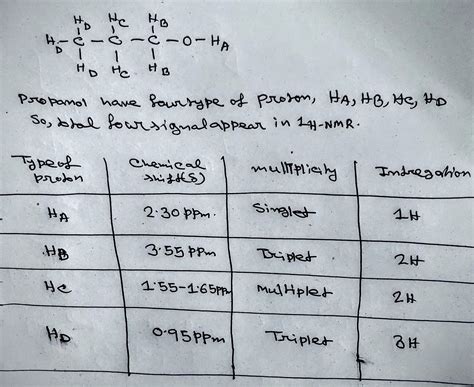 HD HC HB
H-C-C-C-O-HA
D
HD HC HB
Propanol have four type of proton, HA, HB, HC, HD
So, total four signal appear in 1H-NMR.
Type of proton | Chemical shift(δ) | multiplicity | Indregation
HA | 2.30 ppm. | Singlet | 1H
HB | 3.55 ppm | Triplet | 2H
HC | 1.55-1.65ppm | Multiplet | 2H
HD | 0.95 ppm | Triplet | 3H